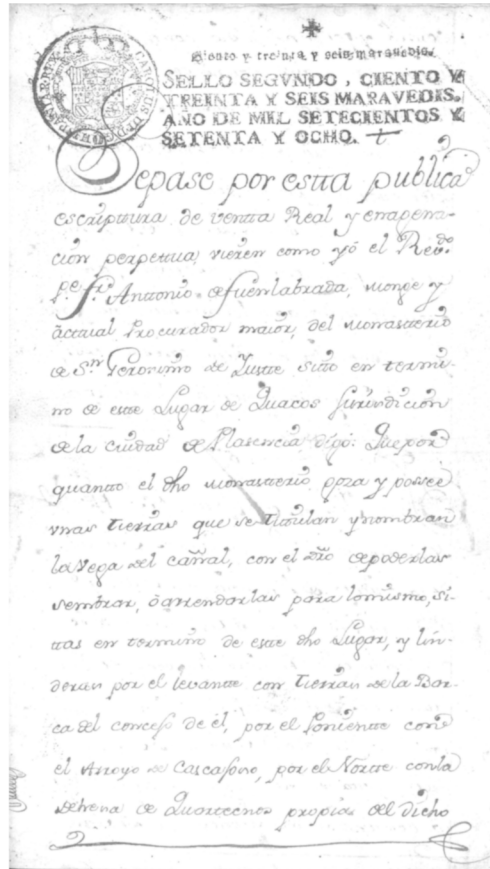 Ciento y treinta y seis maravedis.
SELLO SEGVNDO, CIENTO Y
TREINTA Y SEIS MARAVEDIS.
AÑO DE MIL SETECIENTOS Y
SETENTA Y OCHO.
Sepase por estta publica
escripttura de ventta Real y enagena-
cion perpetua, vieren como yó el Revdo.
Pe. fr. Anttonio de fuenlabrada, monge y
acttual Procurador maior, del monastterio
de Sn. Geronimo de Yustte sitto en termi-
no de estte Lugar de Quacos Jurisdicion
de la ciudad de Plasencia digo: Que por
quantto el dho monastterio goza y possee
vnas tierras que se titulan y nombran
la Vega del cañal, con el dro de poderlas
sembrar, ó arrendarlas para lo mismo, si-
ttas en termino de estte dho Lugar, y lin-
deran por el levantte con tierras de la Bar-
ca del concejo de él, por el Ponientte con
el Arroyo de, por el Nortte con la
dehesa de propia del dicho